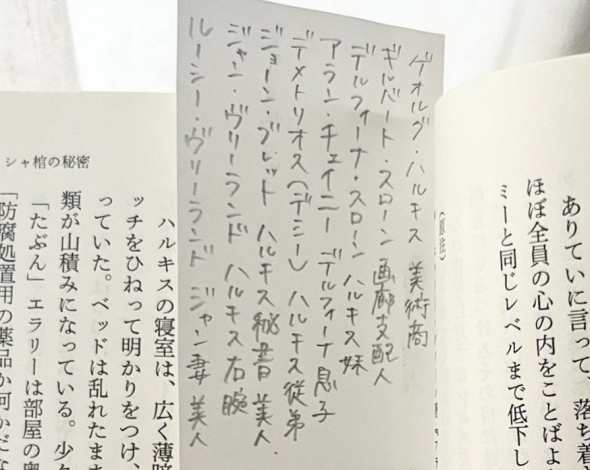 ありていに言って、落ち着
ほぼ全員の心の内をことばよ
ミーと同じレベルまで低下し
ゲオルグ・ハルキス 美術商
ギルバート・スローン 画廊支配人
デルフィーナ・スローン ハルキス妹
アラン・チェイニー デルフィーナ息子
デメトリオス(デミー) ハルキス従弟
ジョーン・ブレット ハルキス秘書 美人、
ジャン・ヴリーランド ハルキス右腕
ルーシー・ヴリーランド ジャン妻 美人
シャ棺の秘密
ハルキスの寝室は、広く薄暗
ッチをひねって明かりをつけ、
っていた。ベッドは乱れたまま
類が山積みになっている。少々
「たぶん」エラリーは部屋の奥
「防腐処置用の薬品か何かだな